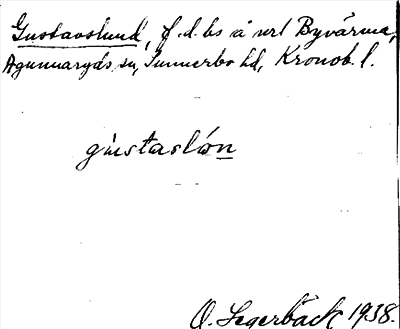 Gustavslund, f.d. bs å url Byvärma,
Agunnaryds sn, Sunnerbo hd, Kronob. l.
gùstaslón
O. Segerbäck 1938.